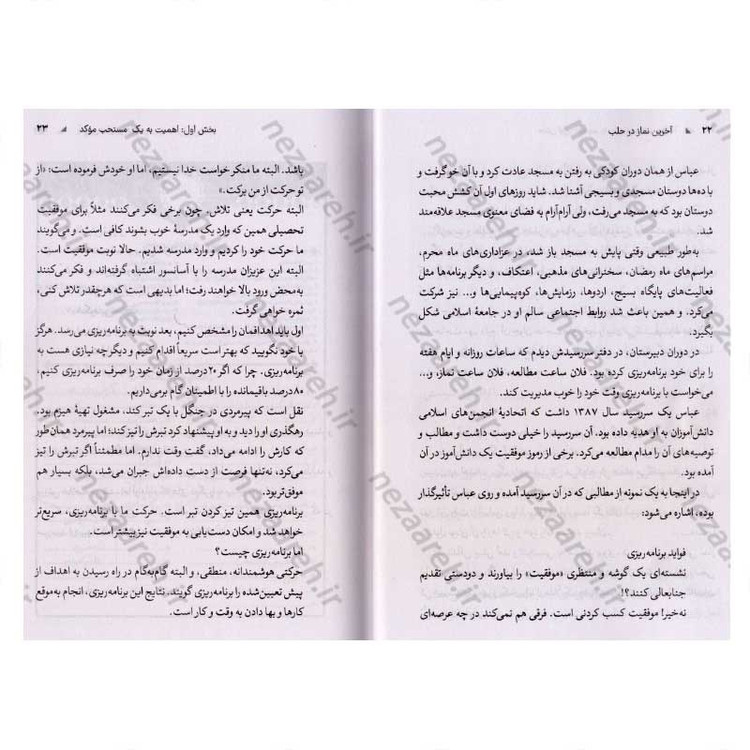 ۲۲ آخرین نماز در حلب
عباس از همان دوران کودکی به رفتن به مسجد عادت کرد و با آن خو گرفت و
با ده‌ها دوستان مسجدی و بسیجی آشنا شد. شاید روزهای اول آن کشش محبت
دوستان بود که به مسجد می‌رفت، ولی آرام‌آرام به فضای معنوی مسجد علاقه‌مند
شد.
به‌طور طبیعی وقتی پایش به مسجد باز شد، در عزاداری‌های ماه محرم،
مراسم‌های ماه رمضان، سخنرانی‌های مذهبی، اعتکاف، و دیگر برنامه‌ها مثل
فعالیت‌های پایگاه بسیج، اردوها، رزمایش‌ها، کوه‌پیمایی‌ها و... نیز شرکت
می‌کرد، و همین باعث شد روابط اجتماعی سالم او در جامعهٔ اسلامی شکل
بگیرد.
در دوران دبیرستان، در دفتر سررسیدش دیدم که ساعات روزانه و ایام هفته
را برای خود برنامه‌ریزی کرده بود. فلان ساعت مطالعه، فلان ساعت نماز، و...
می‌خواست با برنامه‌ریزی وقت خود را خوب مدیریت کند.
عباس یک سررسید سال ۱۳۸۷ داشت که اتحادیهٔ انجمن‌های اسلامی
دانش‌آموزان به او هدیه داده بود. آن سررسید را خیلی دوست داشت و مطالب و
توصیه‌های آن را مدام مطالعه می‌کرد. برخی از رموز موفقیت یک دانش‌آموز در آن
آمده بود.
در اینجا به یک نمونه از مطالبی که در آن سررسید آمده و روی عباس تأثیرگذار
بوده، اشاره می‌شود:
فواید برنامه‌ریزی
نشسته‌ای یک گوشه و منتظری «موفقیت» را بیاورند و دودستی تقدیم
جنابعالی کنند؟!
نه‌خیر! موفقیت کسب کردنی است. فرقی هم نمی‌کند در چه عرصه‌ای
بخش اول: اهمیت به یک مستحب مؤکد ۲۳
باشد. البته ما منکر خواست خدا نیستیم، اما او خودش فرموده است: «از
تو حرکت از من برکت.»
البته حرکت یعنی تلاش. چون برخی فکر می‌کنند مثلاً برای موفقیت
تحصیلی همین که وارد یک مدرسهٔ خوب بشوند کافی است. و می‌گویند
ما حرکت خود را کردیم و وارد مدرسه شدیم. حالا نوبت موفقیت است.
البته این عزیزان مدرسه را با آسانسور اشتباه گرفته‌اند و فکر می‌کنند
به‌محض ورود بالا خواهند رفت؛ اما بدیهی است که هرچقدر تلاش کنی،
ثمره خواهی گرفت.
اول باید اهدافمان را مشخص کنیم، بعد نوبت به برنامه‌ریزی می‌رسد. هرگز
با خود نگویید که بهتر است سریعاً اقدام کنیم و دیگر چه نیازی هست به
برنامه‌ریزی. چرا که اگر ۲۰درصد از زمان خود را صرف برنامه‌ریزی کنیم،
۸۰درصد باقیمانده را با اطمینان گام برمی‌داریم.
نقل است که پیرمردی در جنگل با یک تبر کند، مشغول تهیهٔ هیزم بود.
رهگذری او را دید و به او پیشنهاد کرد تبرش را تیز کند؛ اما پیرمرد همان‌طور
که کارش را ادامه می‌داد، گفت وقت ندارم. اما مطمئناً اگر تبرش را تیز
می‌کرد، نه‌تنها فرصت از دست داده‌اش جبران می‌شد، بلکه بسیار هم
موفق‌تر بود.
برنامه‌ریزی همین تیز کردن تبر است. حرکت ما با برنامه‌ریزی، سریع‌تر
خواهد شد و امکان دست‌یابی به موفقیت نیز بیشتر است.
اما برنامه‌ریزی چیست؟
حرکتی هوشمندانه، منطقی، و البته گام‌به‌گام در راه رسیدن به اهداف از
پیش تعیین‌شده را برنامه‌ریزی گویند. نتایج این برنامه‌ریزی، انجام به‌موقع
کارها و بها دادن به وقت و کار است.
nezaareh.ir